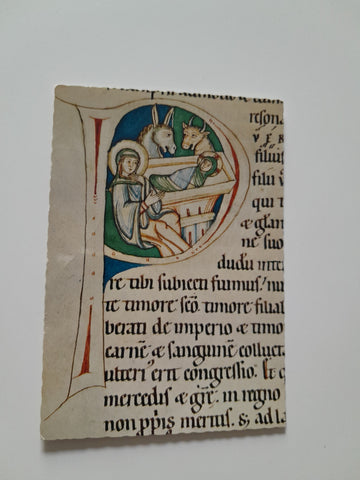 reson
V E R
filius
filii
qui t
& glan
ne suo
dudu inte
re tibi subiecti fuimus/ nu
te timore sco. timore filial
berati de imperio & timo
carne & sanguine colluct
ulteri erit congressio.
mercedis & gre. in regno
non pp̄is meritis. & ad la